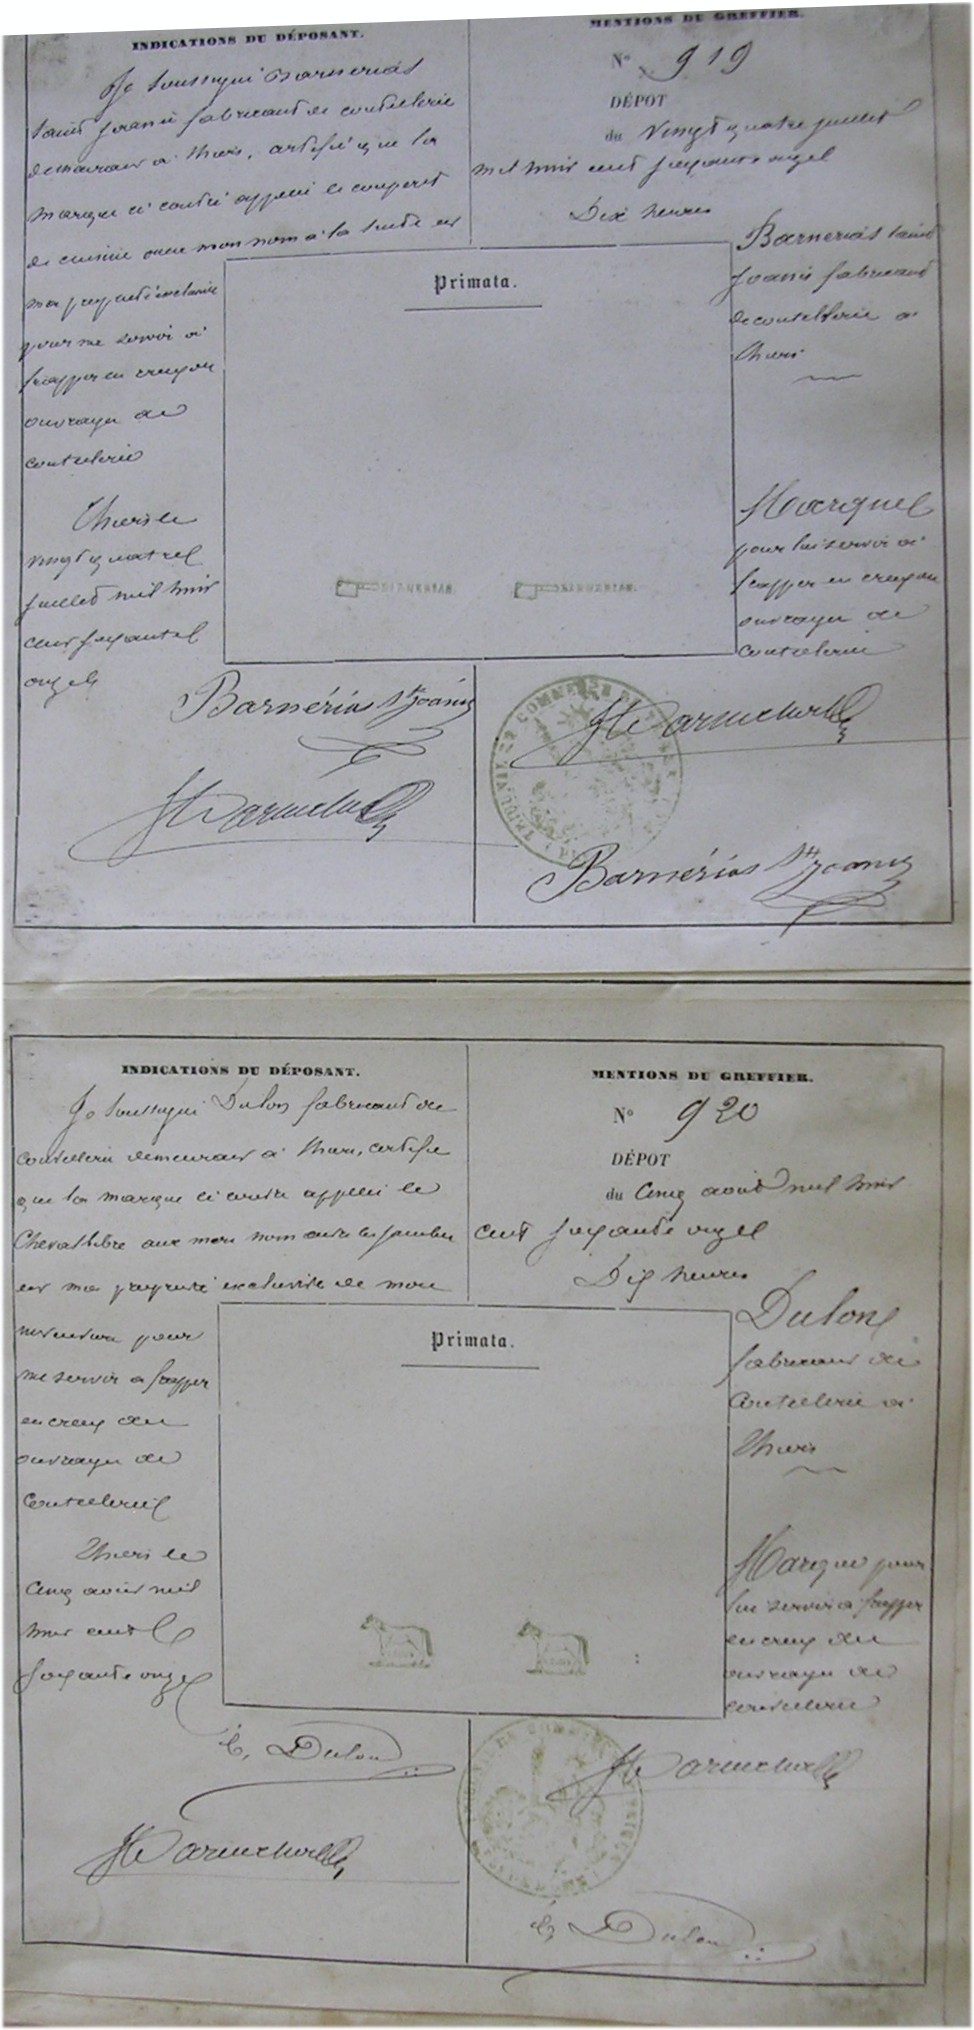 INDICATIONS DU DÉPOSANT.
Je soussigné Barnérias
saint Joanis fabricant de coutellerie
demeurant à Thiers, certifie que la
marque ci contre appelée le couperet
de cuisine avec mon nom à la suite est
ma propriété exclusive
pour me servir à
frapper en creux
ouvrages de
coutellerie
Thiers le
vingt quatre
juillet mil huit
cent soixante
onze
Barnérias St Joanis
MENTIONS DU GREFFIER.
N° 919
DÉPOT
du Vingt quatre juillet
mil huit cent soixante onze
Dix heures
Barnérias saint
Joanis fabricant
de coutellerie à
Thiers
Primata.
Marque
pour lui servir à
frapper en creux
ouvrages de
coutellerie
Barnérias St Joanis
INDICATIONS DU DÉPOSANT.
Je soussigné Dulon fabricant de
coutellerie demeurant à Thiers, certifie
que la marque ci contre appelée le
Cheval libre avec mon nom entre les jambes
est ma propriété exclusive de mon
pour
me servir à frapper
en creux des
ouvrages de
coutellerie
Thiers le
Cinq août mil
huit cent
soixante onze
Dulon
MENTIONS DU GREFFIER.
N° 920
DÉPOT
du Cinq août mil huit
cent soixante onze
Dix heures
Dulon
fabricant de
coutellerie à
Thiers
Primata.
Marque pour
lui servir à frapper
en creux des
ouvrages de
coutellerie
Dulon